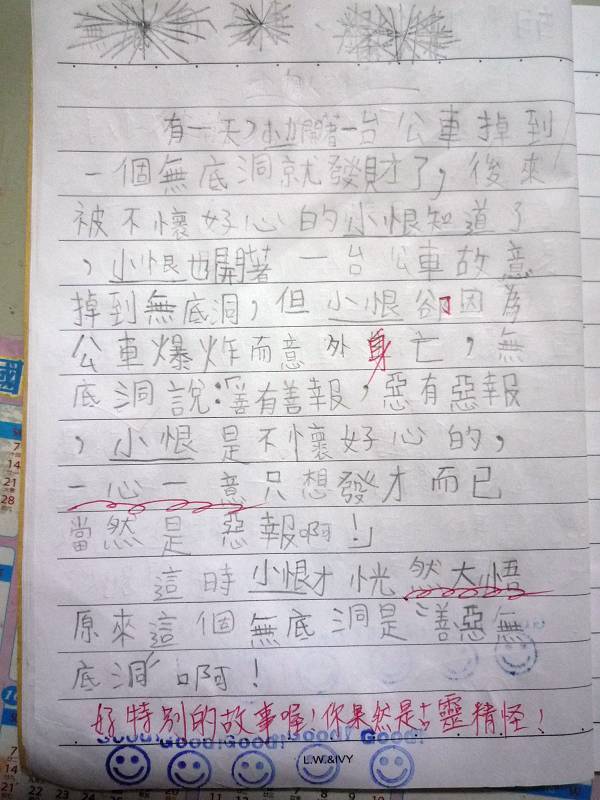 有一天,小力開著一台公車掉到
一個無底洞就發財了,後來
被不懷好心的小恨知道了
,小恨也開著一台公車故意
掉到無底洞,但小恨卻因為
公車爆炸而意外身亡,無
底洞說:「善有善報,惡有惡報
,小恨是不懷好心的,
一心一意只想發才而已
當然是惡報啊!」
這時小恨才恍然大悟
原來這個無底洞是「善惡無
底洞」啊!
好特別的故事喔!你果然是古靈精怪!
Good! Good! Good! Good! Good!
L.W.&IVY
國
7
14
21
28
7
14
21
22 23 24 25 26 27